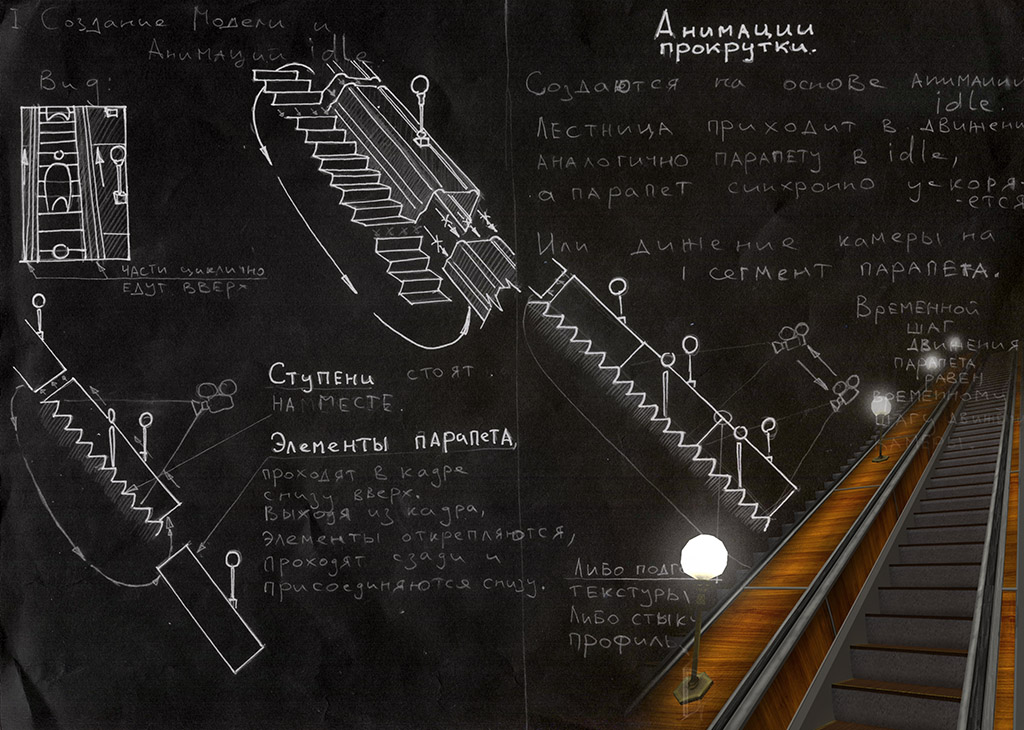 I Создание Модели и
Анимаций idle.
Вид:
части циклично
едут вверх
Ступени стоят.
на месте.
Элементы парапета,
проходят в кадре
снизу вверх.
Выходя из кадра,
элементы открепляются,
проходят сзади и
присоединяются снизу.
Анимации
прокрутки.
Создаются на основе анимации
idle.
Лестница приходит в движени
аналогично парапету в idle,
а парапет синхронно ускоря-
-ется
Или дижение камеры на
1 сегмент парапета.
Временной
шаг
движения
парапета
равен
временному
Либо подг
текстуры
либо стыку
профиль.